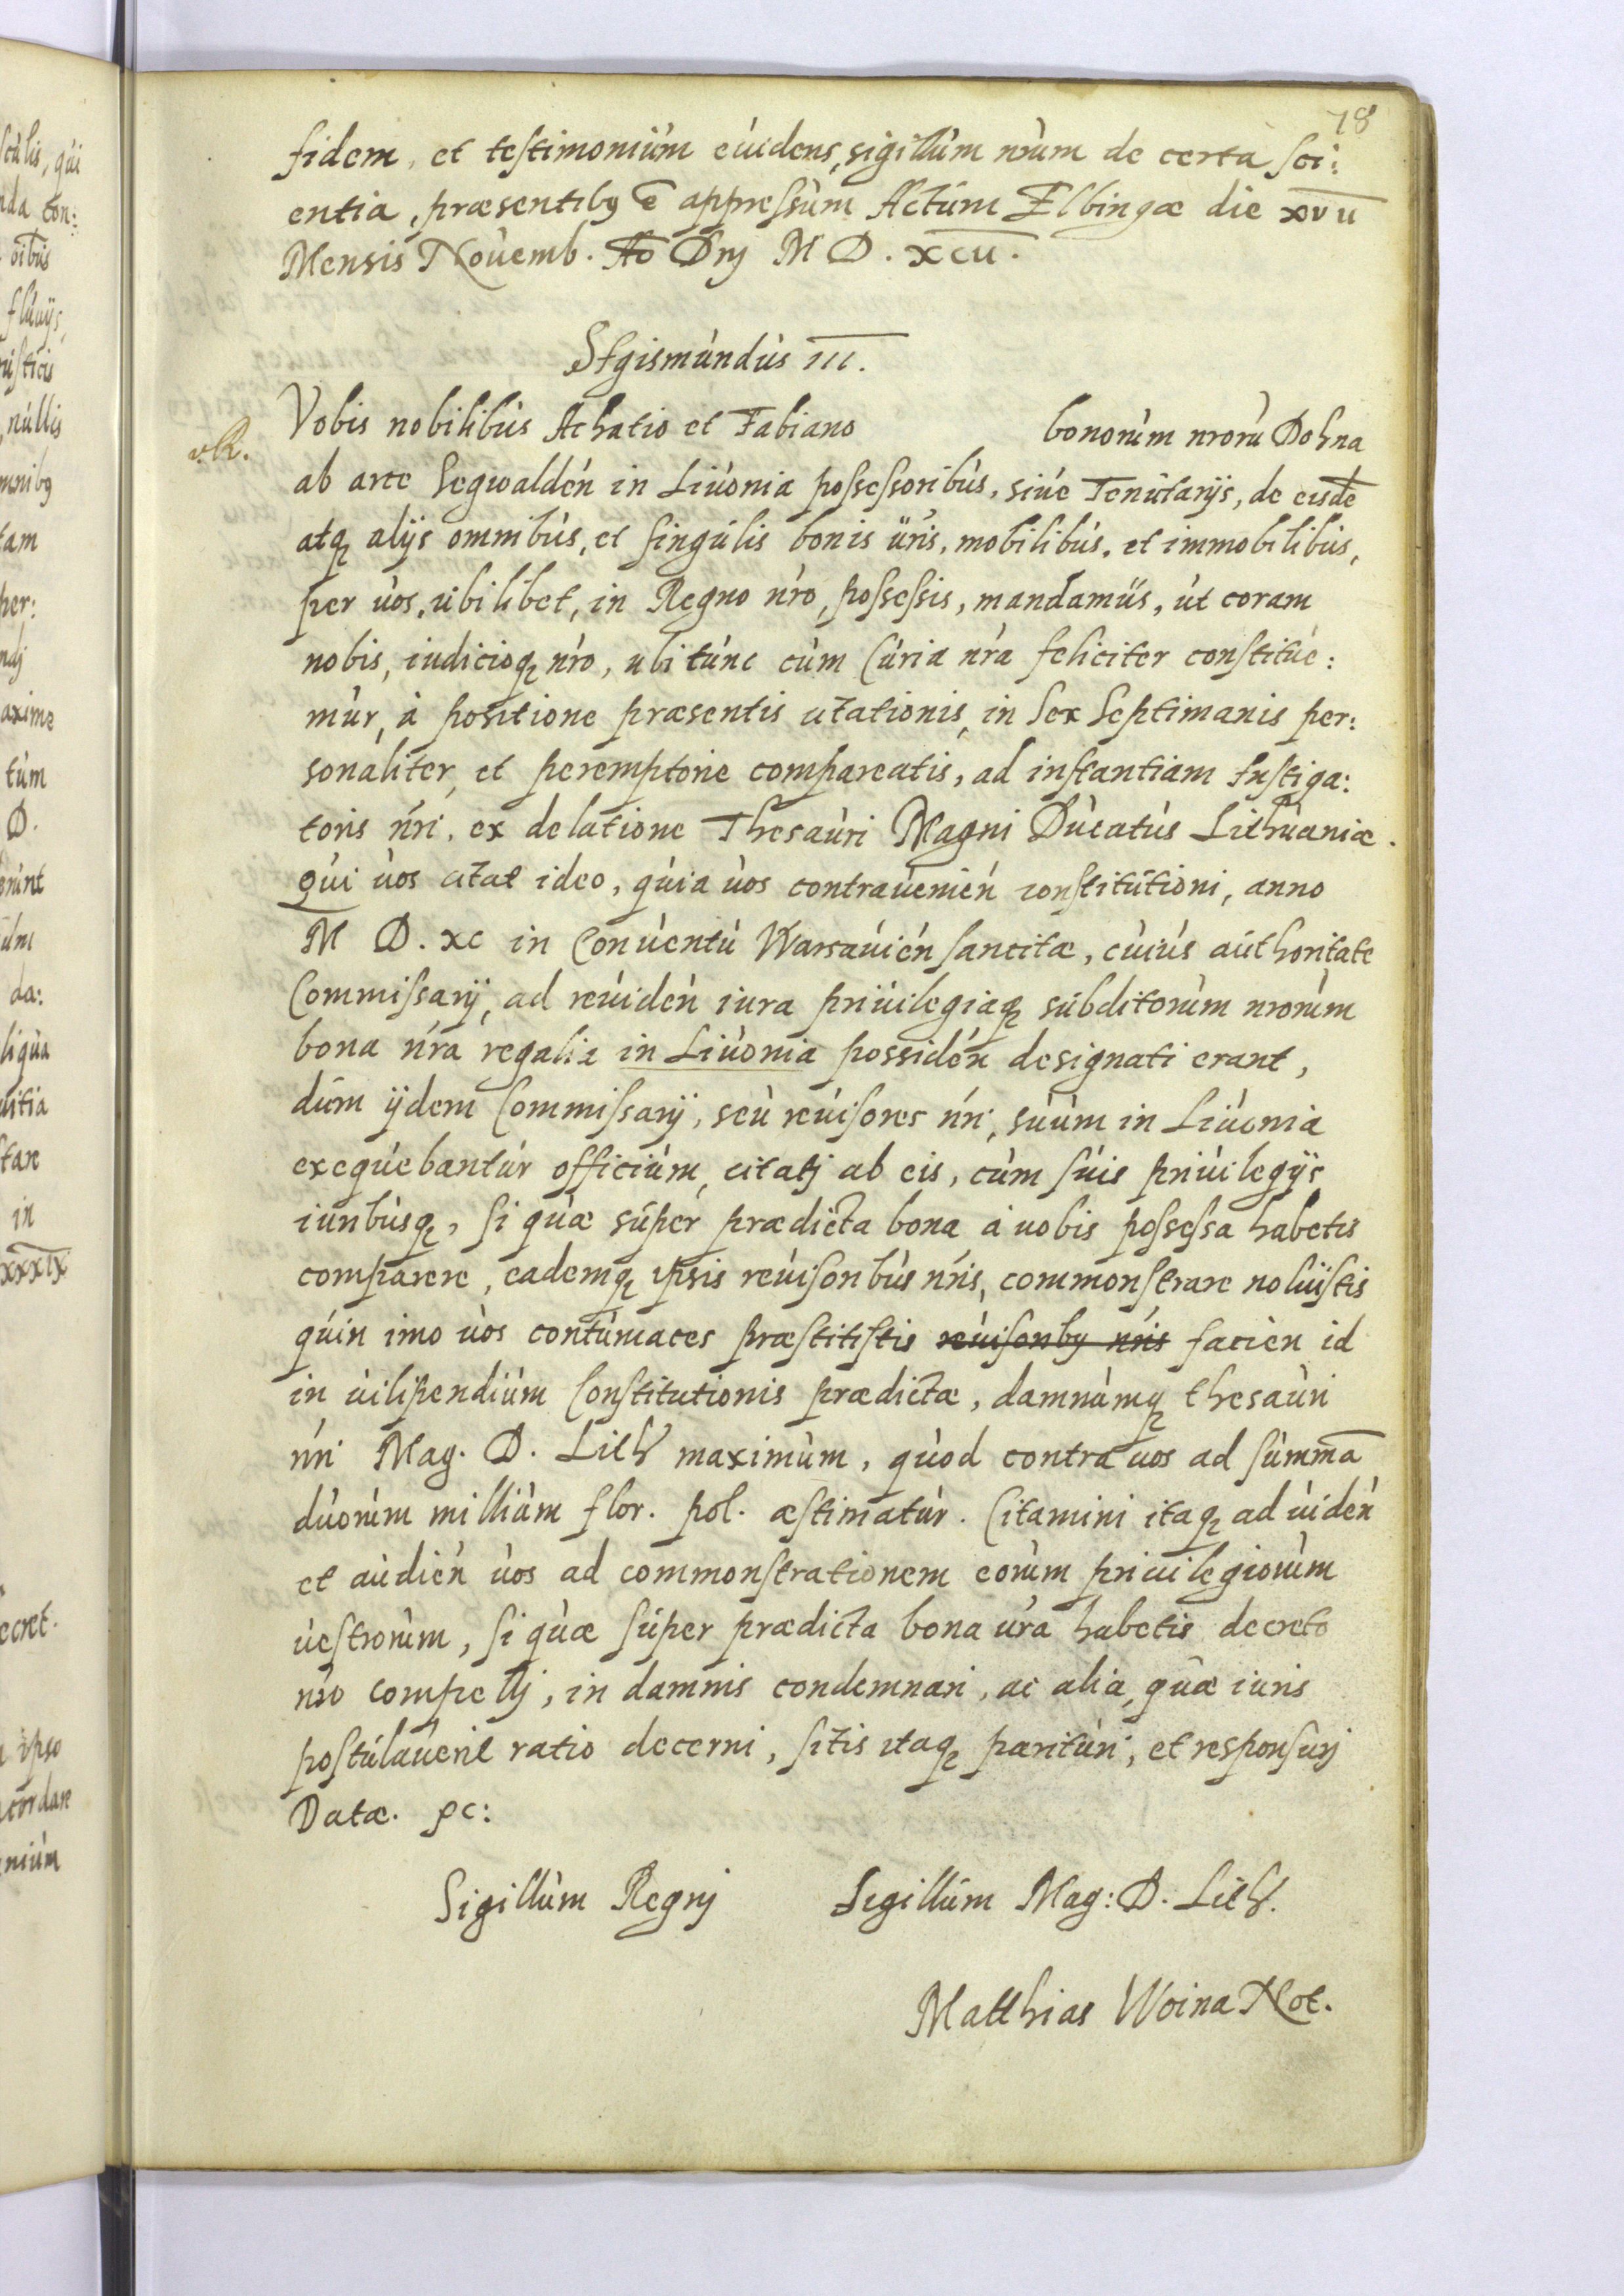 78
fidem, et testimoniùm eùidens, sigillùm nrùm de certa sci:
entia, præsentibꝫ ē appressùm Actùm Elbingæ die xvii
Mensis Nouemb. Ao Dnj M D. xcii.
Sigismùndùs III.
Vobis nobilibùs Achatio et Fabiano bonorùm nrorù Dohna
ab arce Segwaldeń in Liùonia possessoribùs, siùe Tenùtarijs, de eisdē
atqꝫ alijs omnibùs, et singùlis bonis ùris, mobilibùs, et immobilibùs,
per ùos, ùbilibet, in Regno nro, possessis, mandamùs, ùt coram
nobis, iudicioqꝫ nro, ubi tùnc cùm Cùria nra feliciter constitùe:
mùr, à positione præsentis citationis, in sex septimanis per:
sonaliter, et peremptorie compareatis, ad instantiam Instiga:
toris nri, ex delatione Thesaùri Magni Dùcatùs Lithùaniæ.
qùi ùos citat ideo, qùia ùos contraùenień constitùtioni, anno
M D. xc in Conùentù Warsaùień sancitæ, cùiùs aùthoritate
Commissarij, ad reùideń iura priùilegiaqꝫ sùbditorùm nrorùm
bona nra regalia in Liùonia possideń designati erant,
dùm ijdem Commissarij, seù reùisores nri, sùùm in Liùonia
exeqùebantùr officiùm, citatj ab eis, cùm sùis priùilegijs
iuribùsqꝫ, si qùæ sùper prædicta bona à uobis possessa habetis
comparere, eademqꝫ ipsis reùisoribùs nris, commonstrare nolùistis
qùin imo ùos contùmaces præstitistis reùisoribꝫ nris facień id
in ùilipendiùm Constitutionis prædictæ, damnùmqꝫ thesaùri
nri Mag. D. Lith maximùm, qùod contra uos ad sùmmā
dùorùm milliùm flor. pol. æstimatùr. Citamini itaqꝫ ad ùideń
et aùdień ùos ad commonstrationem eorùm priuilegiorùm
ùestrorùm, si qùæ sùper prædicta bona ùra habetis decreto
nro compellj, in damnis condemnari, ac alia, qùæ iuris
postùlaùerit ratio decerni, sitis itaqꝫ paritùri, et responsurj
Datæ. ꝛc:
Sigillùm Regnj Sigillùm Mag: D. Lith.
Matthias Woina Not.